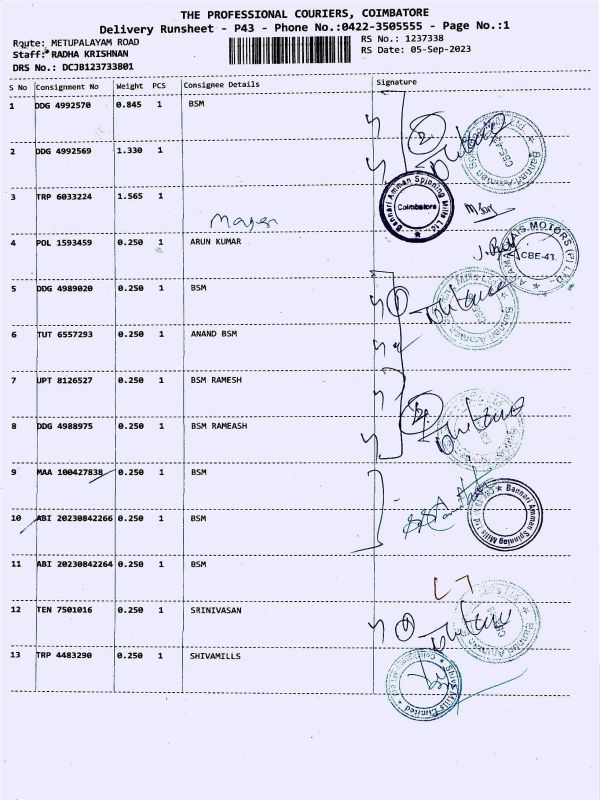 THE PROFESSIONAL COURIERS, COIMBATORE
Delivery Runsheet - P43 - Phone No.:0422-3505555 - Page No.:1
Route: METUPALAYAM ROAD
RS No.: 1237338
Staff: RADHA KRISHNAN
RS Date: 05-Sep-2023
DRS No.: DCJB123733801
S No Consignment No Weight PCS Consignee Details Signature
1 DDG 4992570 0.845 1 BSM
2 DDG 4992569 1.330 1
3 TRP 6033224 1.565 1
Bannari Amman Spinning Mills Ltd.
Coimbatore
4 POL 1593459 0.250 1 ARUN KUMAR
MOTORS (P) LTD
CBE-43.
5 DDG 4989020 0.250 1 BSM
6 TUT 6557293 0.250 1 ANAND BSM
7 UPT 8126527 0.250 1 BSM RAMESH
8 DDG 4988975 0.250 1 BSM RAMEASH
9 MAA 100427838 0.250 1 BSM
10 ABI 20230842266 0.250 1 BSM
Bannari Amman Spinning Mills Ltd
11 ABI 20230842264 0.250 1 BSM
12 TEN 7501016 0.250 1 SRINIVASAN
13 TRP 4483290 0.250 1 SHIVAMILLS
Shiva Mills Limited